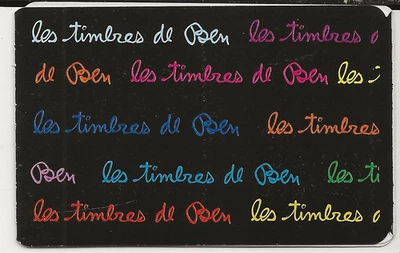 les timbres de Ben les timbres d
de Ben les timbres de Ben les
les timbres de Ben les timbres
Ben les timbres de Ben les ti
les timbres de Ben les timbres d